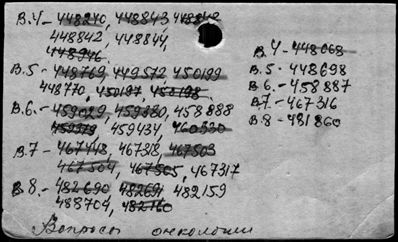 В.4 - 448240, 448843 448842
448842, 448844,
448946.
В.5 - 449769, 449572, 450199
448770, 450197, 450198.
В.6. - 459029, 459880, 458888
459379, 459434, 460330
В.7 - 467448, 467318, 467503
467504, 467505, 467317
В.8. - 482690 482691 482159
488704, 482160
Вопросы онкологии
В.4 - 448068
В.5 - 448698
В.6. - 458887
В.7 - 467316
В.8 - 481860